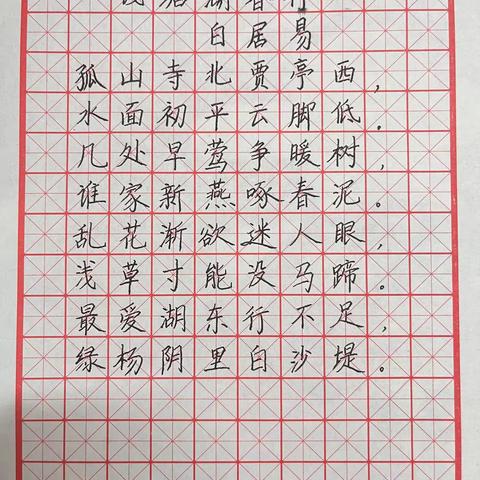 钱塘湖春行
白居易
孤山寺北贾亭西，
水面初平云脚低。
几处早莺争暖树，
谁家新燕啄春泥。
乱花渐欲迷人眼，
浅草才能没马蹄。
最爱湖东行不足，
绿杨阴里白沙堤。